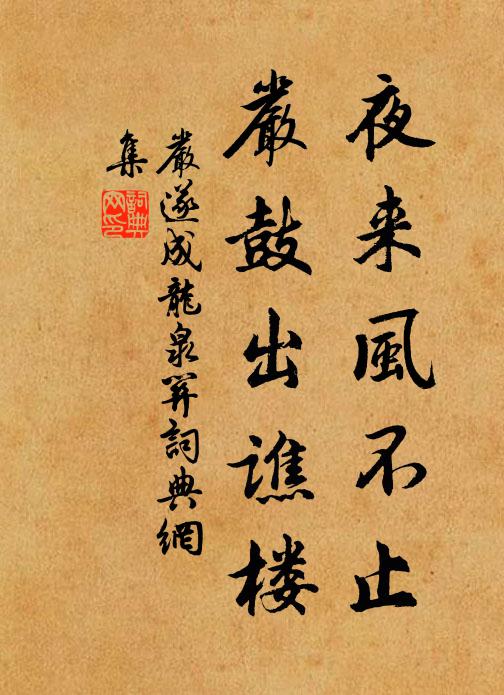 夜来風不止
嚴鼓出譙楼
嚴遂成龍泉關詞典網
集
詞典
网印